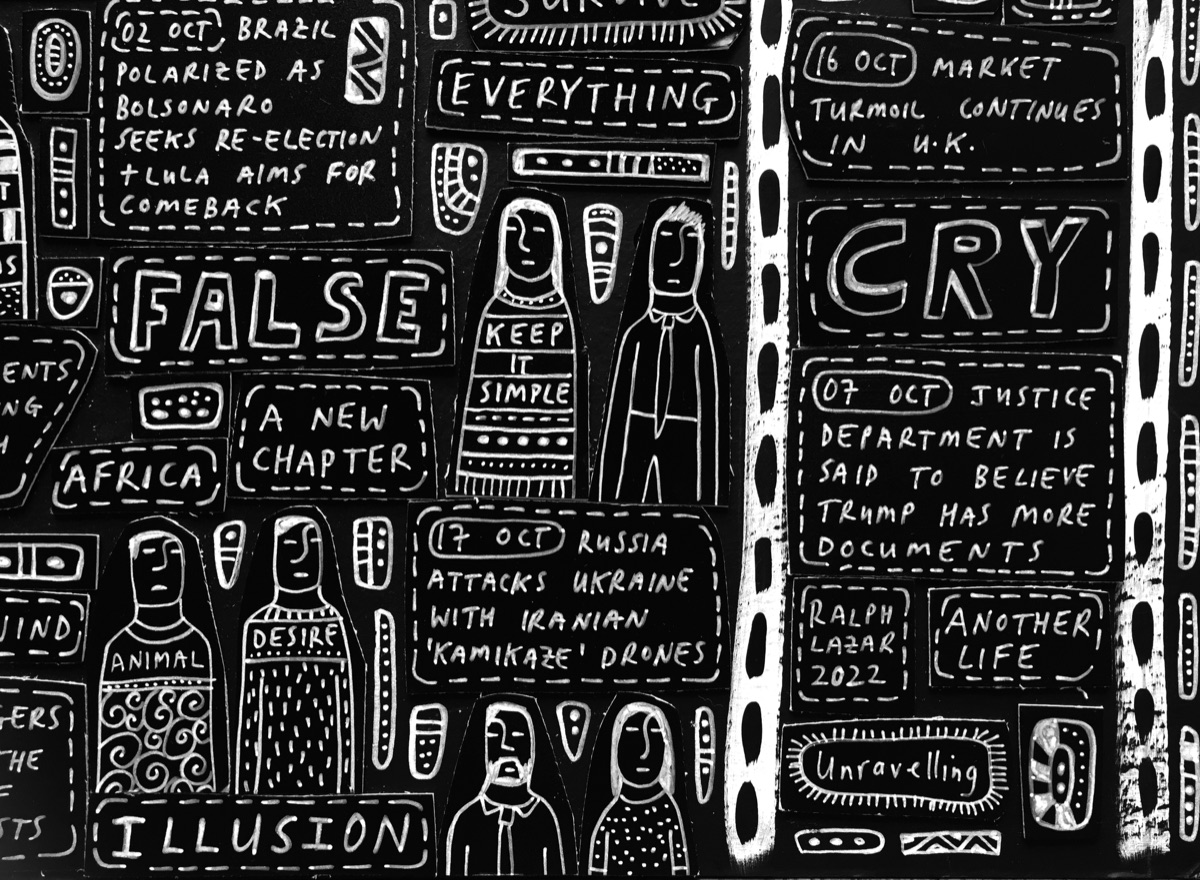 02 OCT BRAZIL
POLARIZED AS
BOLSONARO
SEEKS RE-ELECTION
+ LULA AIMS FOR
COMEBACK
FALSE
A NEW
CHAPTER
AFRICA
ANIMAL
DESIRE
ILLUSION
SURVIVE
EVERYTHING
KEEP
IT
SIMPLE
17 OCT RUSSIA
ATTACKS UKRAINE
WITH IRANIAN
'KAMIKAZE' DRONES
16 OCT MARKET
TURMOIL CONTINUES
IN U.K.
CRY
07 OCT JUSTICE
DEPARTMENT IS
SAID TO BELIEVE
TRUMP HAS MORE
DOCUMENTS
RALPH
LAZAR
2022
ANOTHER
LIFE
Unravelling